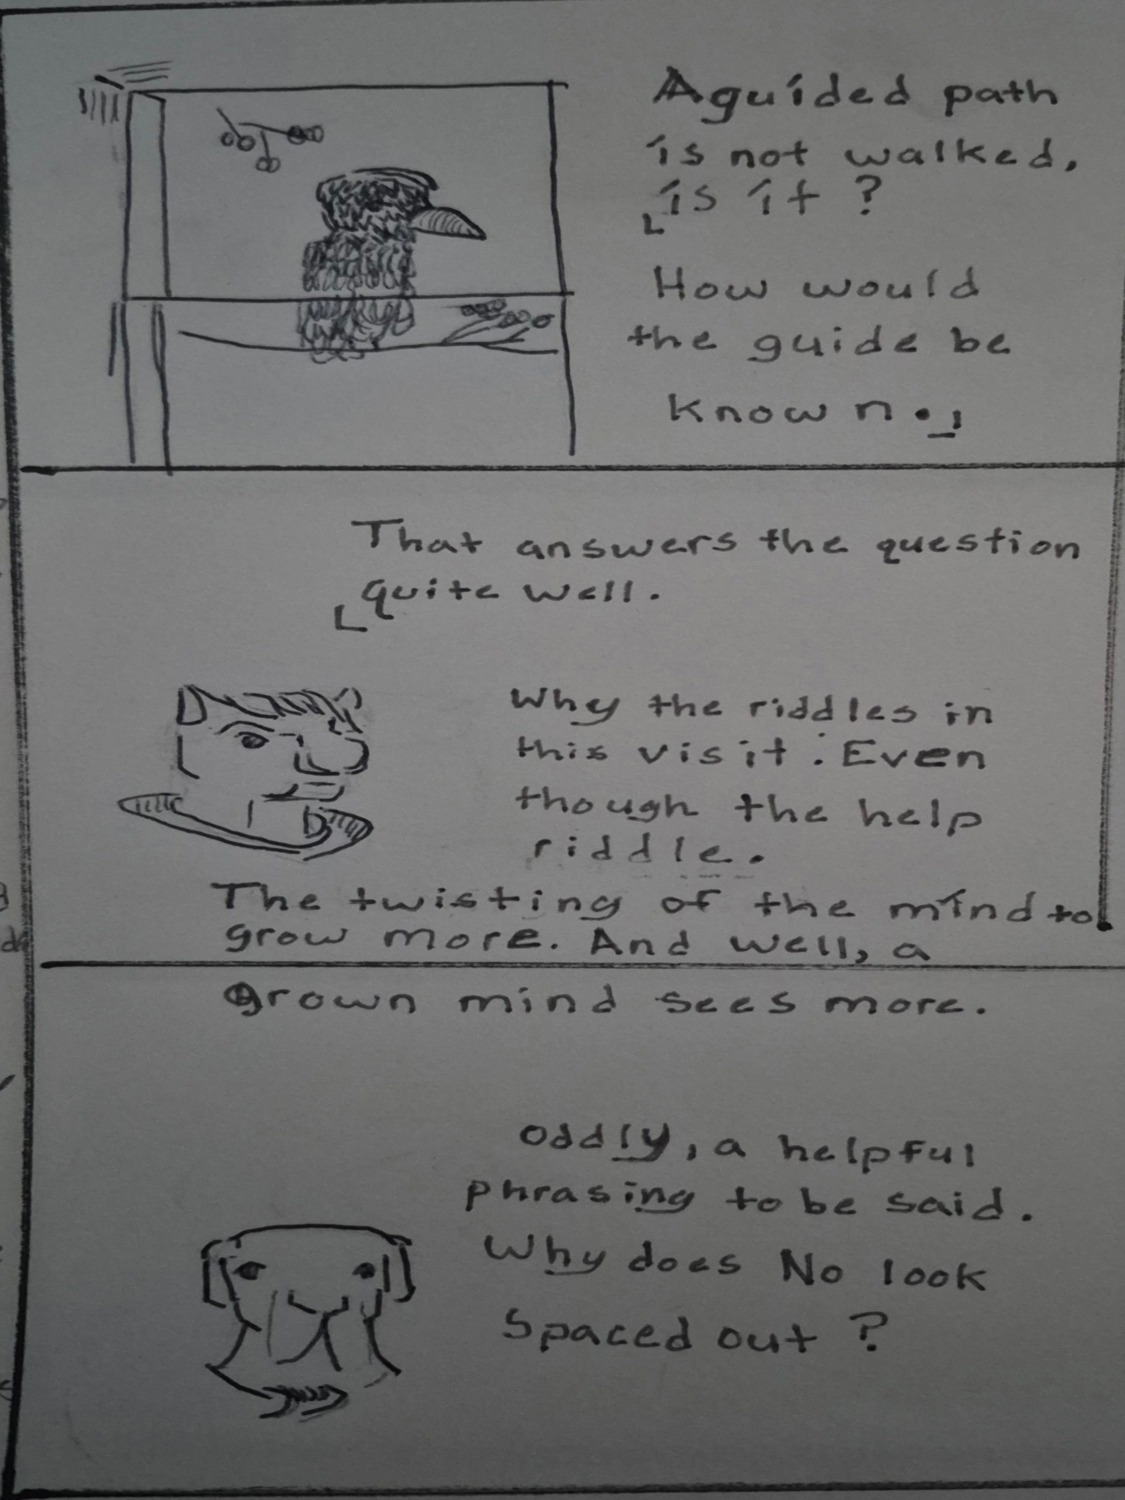 A guided path
is not walked,
is it ?
How would
the guide be
known.
That answers the question
quite well.
Why the riddles in
this visit. Even
though the help
riddle.
The twisting of the mind to
grow more. And well, a
grown mind sees more.
Oddly, a helpful
phrasing to be said.
Why does No look
spaced out ?